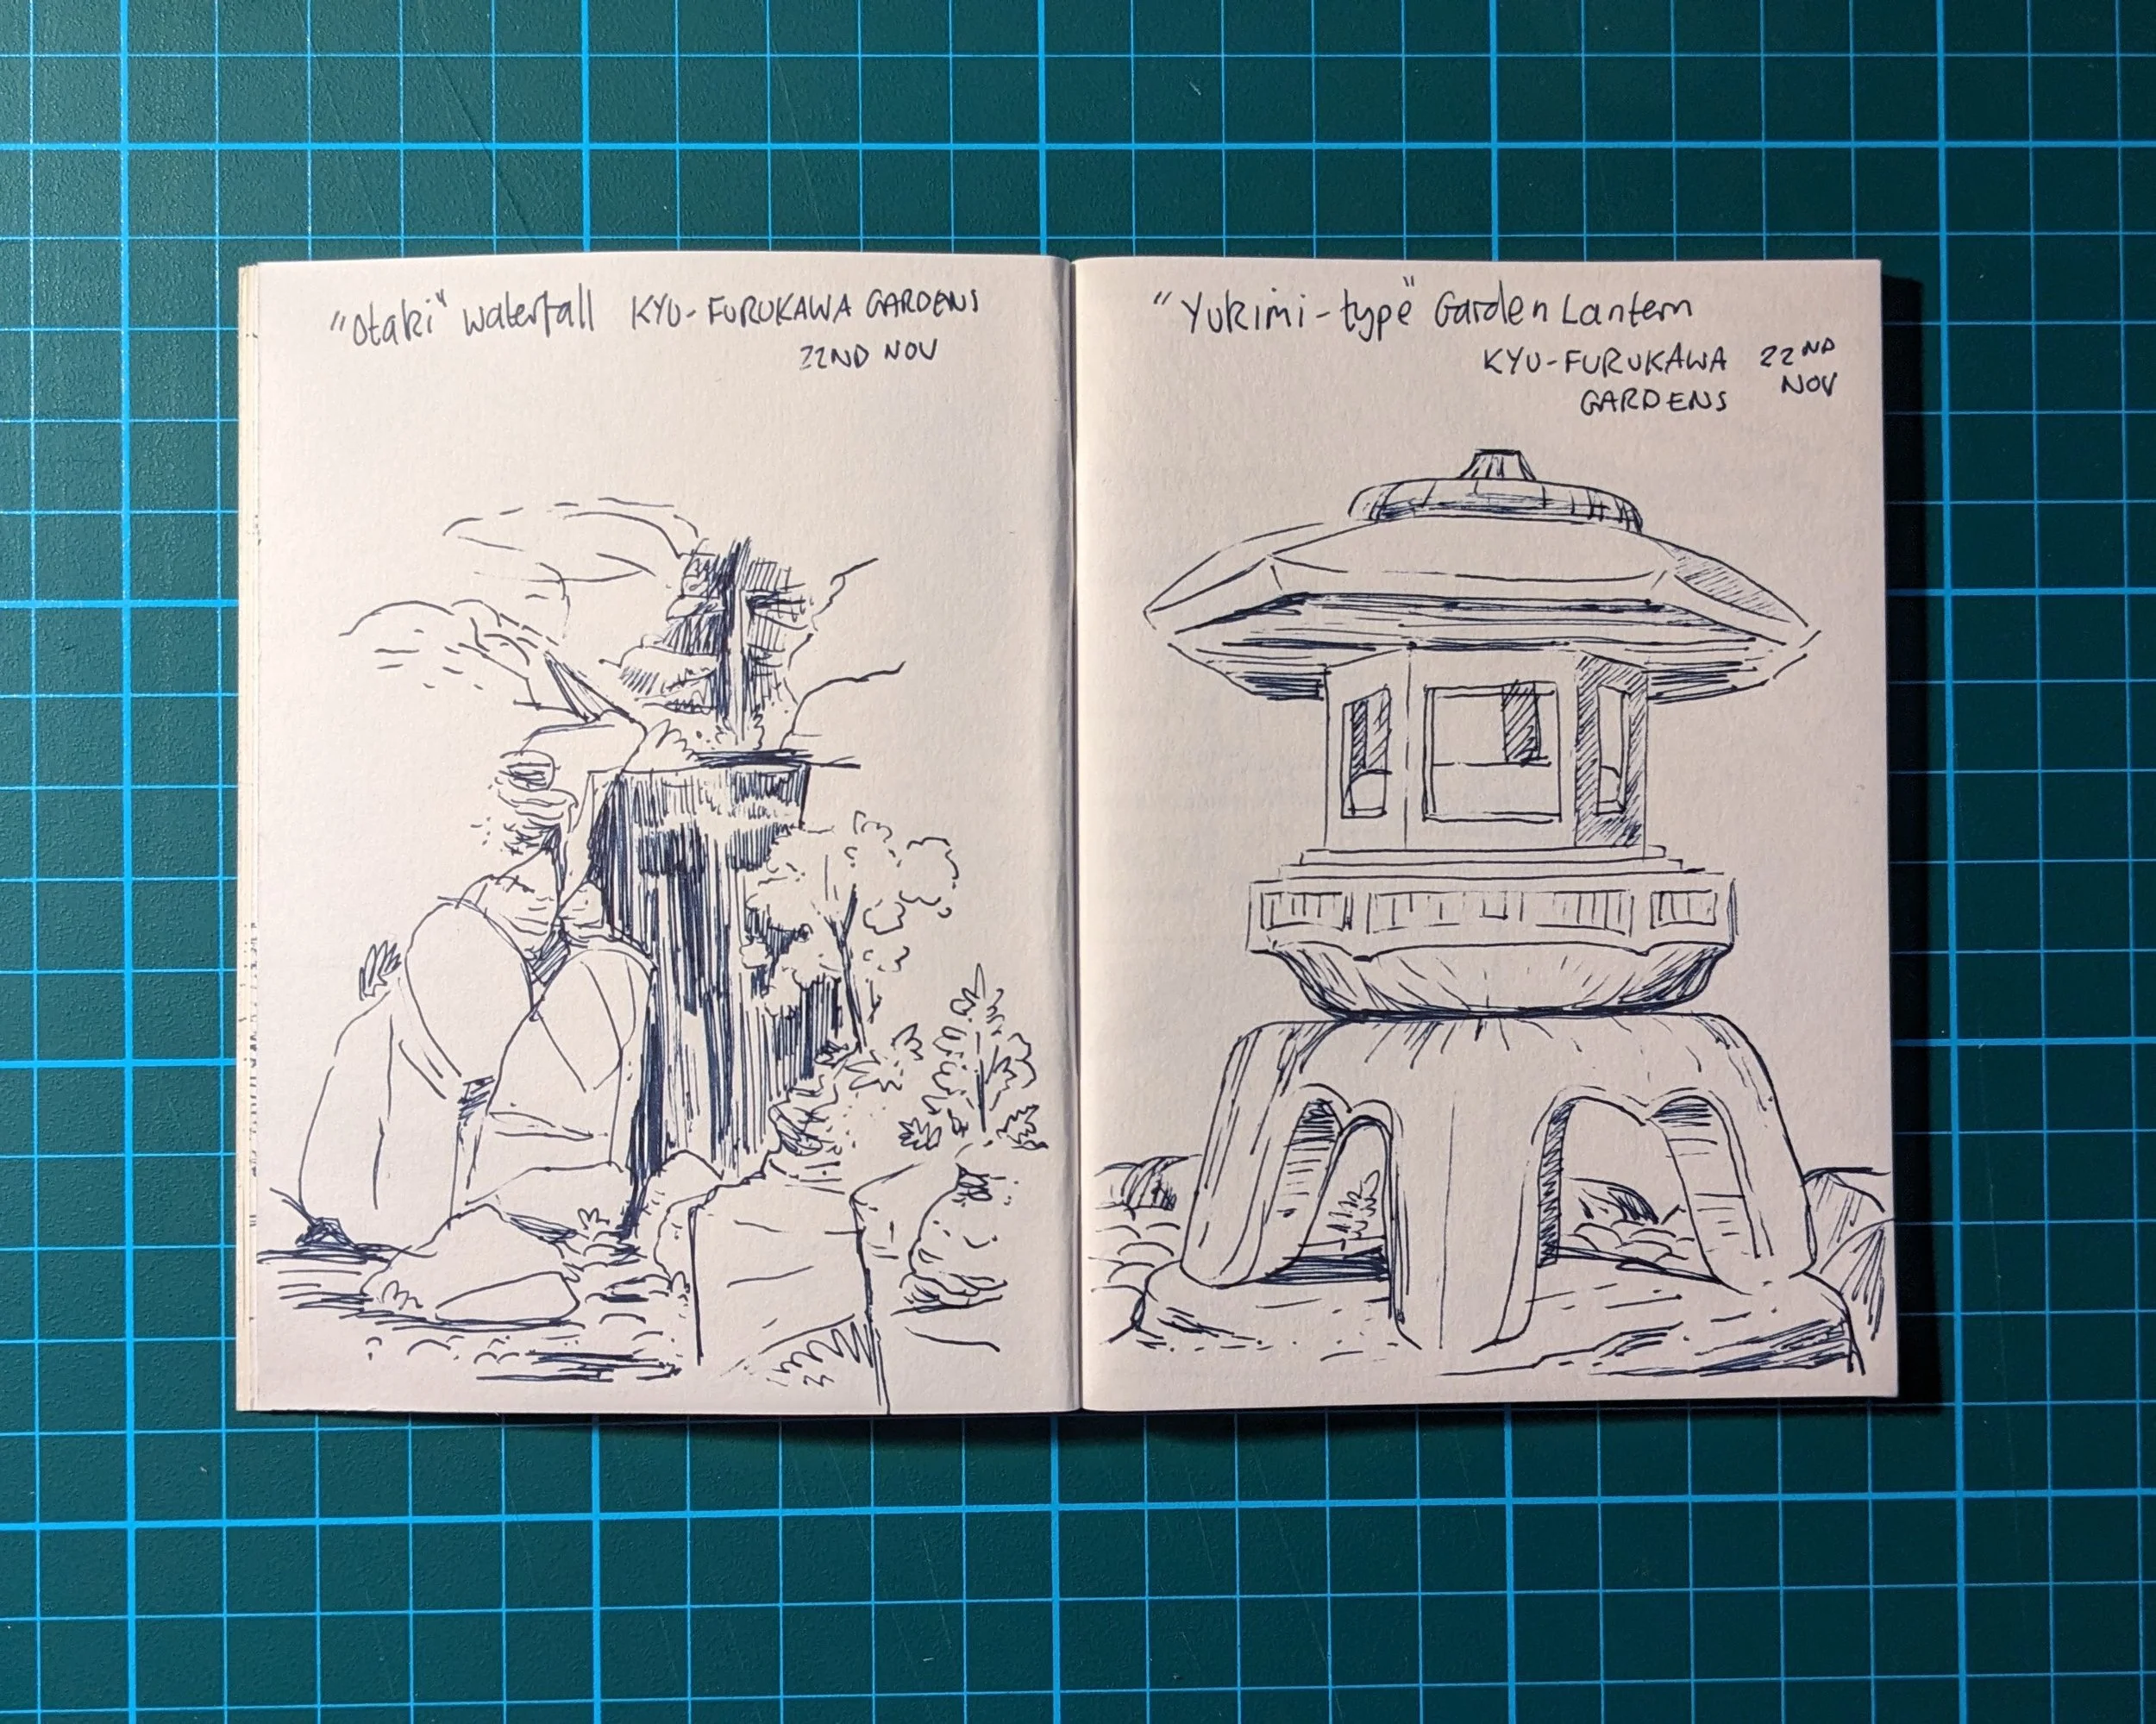 "Otaki" waterfall KYU-FURUKAWA GARDENS
22ND NOV
"Yukimi-type" Garden Lantern
KYU-FURUKAWA 22ND
GARDENS NOV